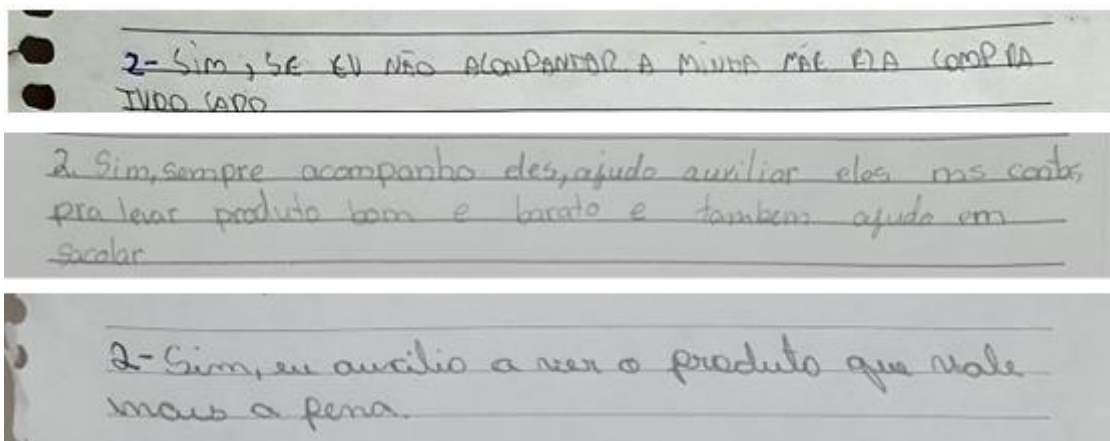 2- Sim, SE EU NÃO ACONPANTAR A MINHA MÃE ELA COMPRA
TUDO CARO
2. Sim, sempre acompanho eles, ajudo auxiliar eles nas contas,
pra levar produto bom e barato e tambem ajudo em
sacolar
2- Sim, eu auxilio a ver o produto que vale
mais a pena.